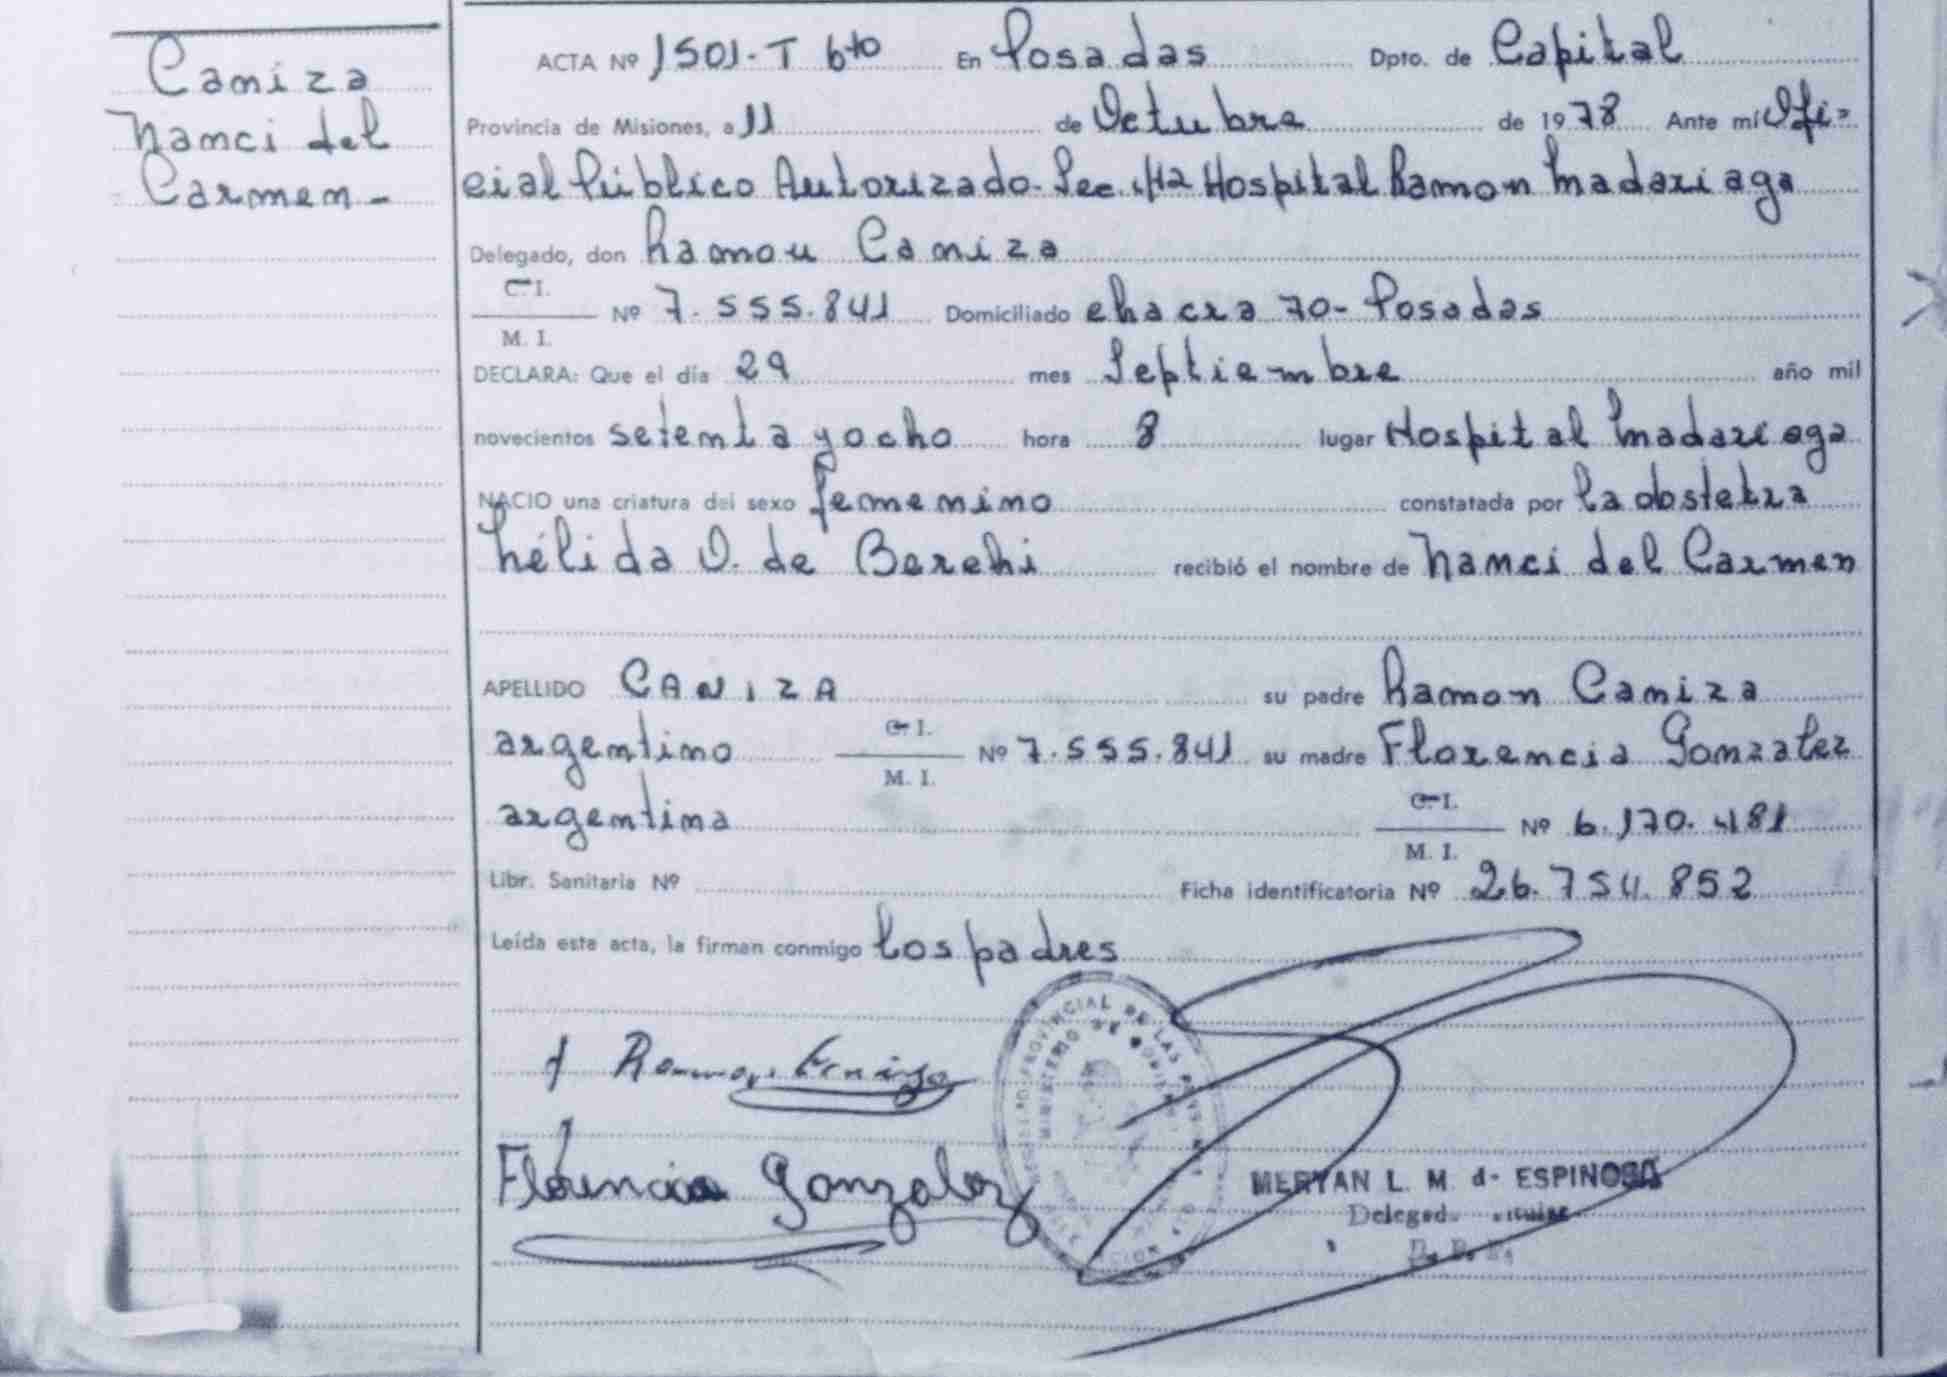 Caniza
Nanci del
Carmen-
ACTA Nº 1501-T 6to En Posadas Dpto. de Capital
Provincia de Misiones, a 11 de Octubre de 1978 Ante mi Ofi-
cial Público Autorizado. Sec. 1ra Hospital Ramon Madariaga
Delegado, don Ramon Caniza
C. I.
Nº 7.555.841 Domiciliado chacra 70- Posadas
M. I.
DECLARA: Que el día 29 mes Septiembre año mil
novecientos setenta y ocho hora 8 lugar Hospital Madariaga
NACIO una criatura del sexo femenino constatada por la obstetra
Nélida O. de Berchi recibió el nombre de Nanci del Carmen
APELLIDO CANIZA su padre Ramon Caniza
argentino C. I. M. I. Nº 7.555.841 su madre Florencia Gonzalez
argentina C. I. M. I. Nº 6.170.481
Libr. Sanitaria Nº Ficha identificatoria Nº 26.754.852
Leída esta acta, la firman conmigo los padres
Florencia Gonzalez
REGISTRO PROVINCIAL DE LAS PERSONAS
MINISTERIO DE GOBIERNO
MERYAN L. M. de ESPINOSA